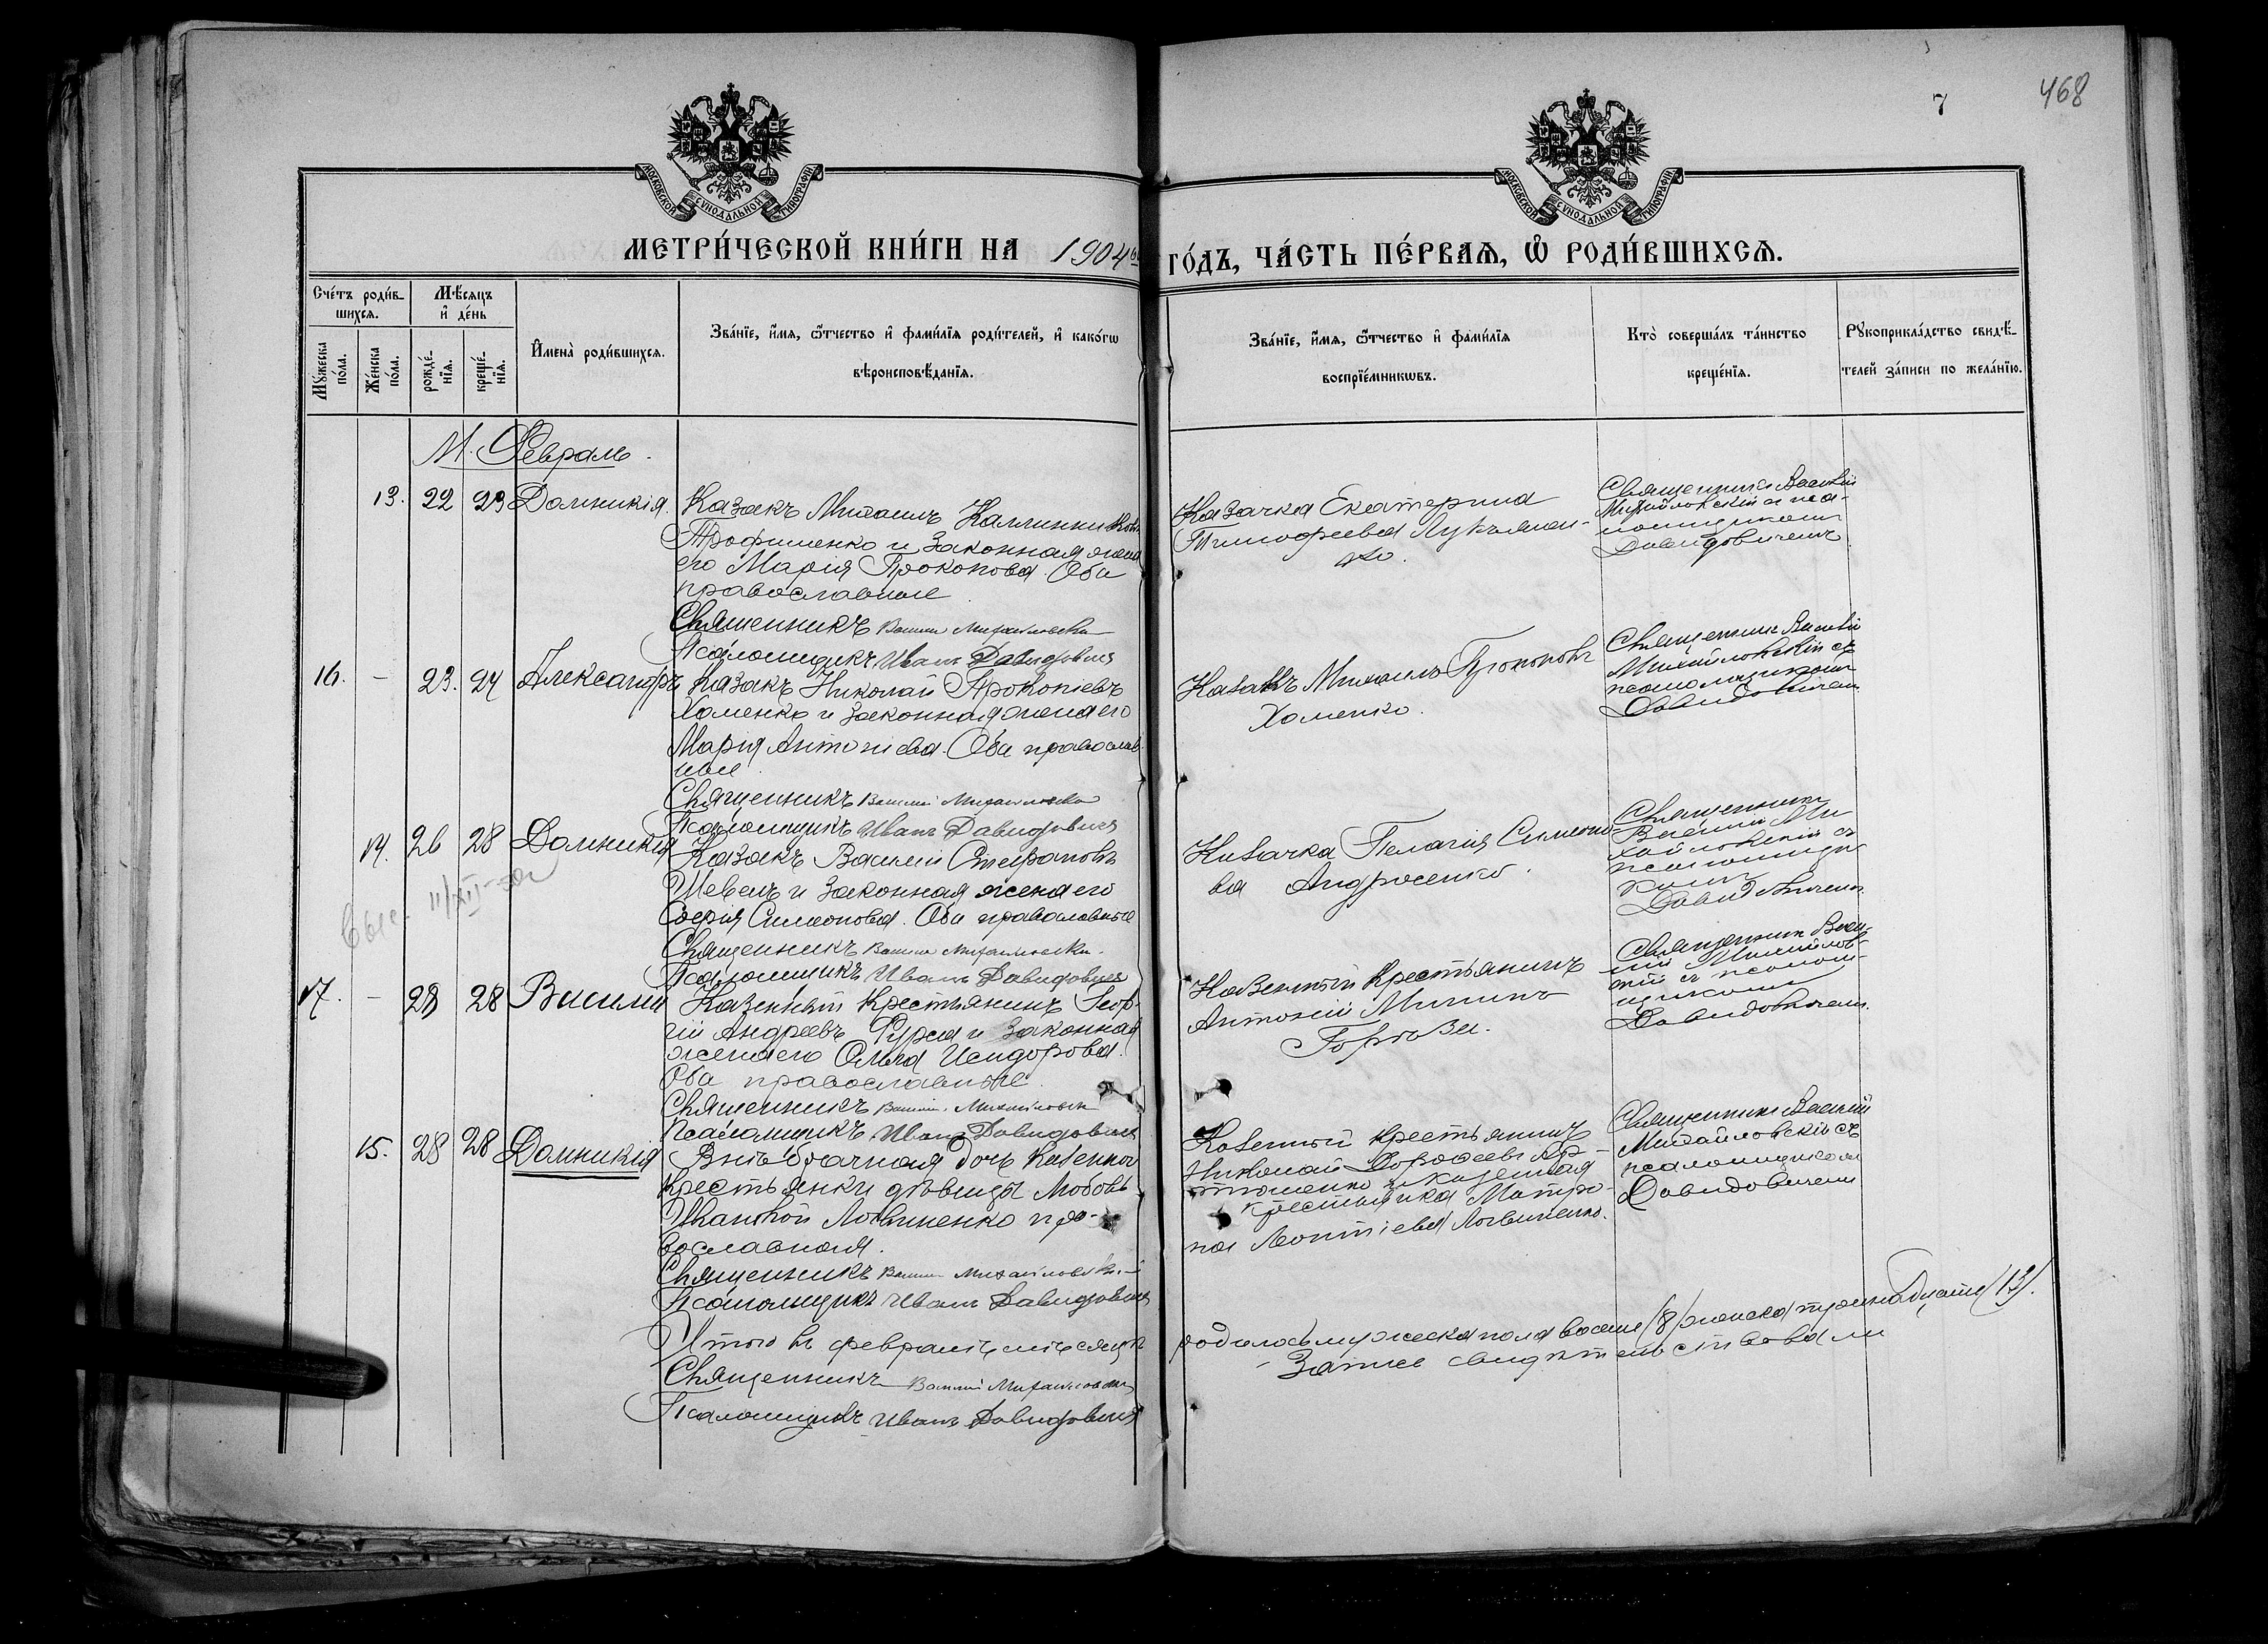 7
468
МОСКОВСКОЙ СѴНОДАЛЬНОЙ ТИПОГРАФІИ
МОСКОВСКОЙ СѴНОДАЛЬНОЙ ТИПОГРАФІИ
МЕТРИ́ЧЕСКОЙ КНИ́ГИ НА 1904 ГО́ДЪ, ЧА́СТЬ ПЕ́РВАѦ, Ѽ РОДИ́ВШИХСѦ.
Сче́тъ роди́в-
шихсѧ.
Мѣ́сѧцъ
и҆ де́нь
Мꙋ́жеска
по́ла.
Же́нска
по́ла.
рожде́-
нїѧ.
креще́-
нїѧ.
И҆мена̀ роди́вшихсѧ.
Зва́нїе, и҆́мѧ, ѻ҆́тчество и҆ фами́лїѧ роди́телей, и҆ како́гѡ
вѣроисповѣ́данїѧ.
Зва́нїе, и҆́мѧ, ѻ҆́тчество и҆ фами́лїѧ
воспрїе́мникѡвъ.
Кто̀ соверша́лъ та́инство
креще́нїѧ.
Рꙋкоприкла́дство свидѣ́-
телей за́писи по жела́нїю.
М. Февраль.
13. 22 23 Домникія.
Казакъ Михаилъ Каллинниковъ
Трофименко и законная жена
его Марія Прокопова. Оба
православные
Священникъ Василій Михайловскій
Псаломщикъ Иванъ Давидовичъ
Казачка Екатерина
Тимофеева Лукъянен-
ко.
Священникъ Василій
Михайловскій съ пса-
ломщикомъ
Давидовичемъ
16. - 23. 24 Александръ
Казакъ Николай Прокопіевъ
Хоменко и законная жена его
Марія Антоніева. Оба православ-
ные
Священникъ Василій Михайловскій
Псаломщикъ Иванъ Давидовичъ
Казакъ Михаилъ Прокоповъ
Хоменко.
Священникъ Василій
Михайловскій съ
псаломщикомъ
Давидовичемъ
14. 26 28 Домникія
11/XII-
Казакъ Василій Стефановъ
Шевель и законная жена его
Софія Симеонова. Оба православные
Священникъ Василій Михайловскій
Псаломщикъ Иванъ Давидовичъ
Казачка Пелагія Симеоно-
ва Андросенко.
Священникъ
Василій Ми-
хайловскій съ
псаломщи-
комъ
Давидовичемъ
17. - 28 28 Василій
Казенный крестьянинъ Геор-
гій Андреевъ Фурса и законная
жена его Ольга Исидорова.
Оба православные.
Священникъ Василій Михайловскій
Псаломщикъ Иванъ Давидовичъ
Казенный крестьянинъ
Антоній Мининъ
Священникъ Васи-
лій Михайлов-
скій съ псалом-
щикомъ
Давидовичемъ.
15. 28 28 Домникія
Внѣбрачная дочь казенной
крестьянки дѣвицы Любовь
Ивановой Логвиненко пра-
вославная.
Священникъ Василій Михайловскій
Псаломщикъ Иванъ Давидовичъ
Казенный крестьянинъ
Николай Дорофеевъ Ар-
тюменко и казенная
крестьянка Матро-
на Леонтіева Логвиненко.
Священникъ Василій
Михайловскій съ
псаломщикомъ
Давидовичемъ
Итого въ февралѣ мѣсяцѣ родилось мужеска пола восемь (8) женска тринадцать (13).
Засимъ свидѣтельствовали
Священникъ Василій Михайловскій
Псаломщикъ Иванъ Давидовичъ